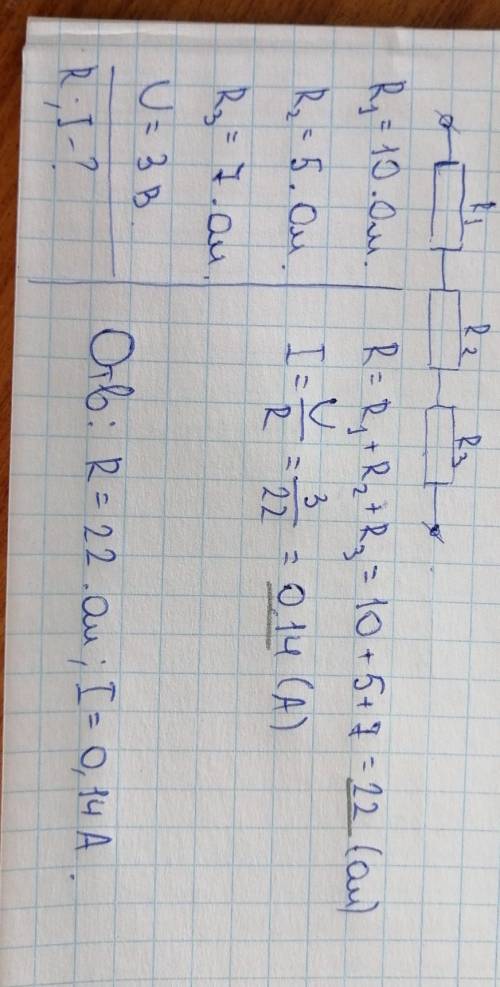 R1 R2 R3
R1 = 10. Ом.
R2 = 5. Ом.
R3 = 7. Ом.
U = 3 В
R; I - ?
R = R1 + R2 + R3 = 10 + 5 + 7 = 22 (Ом)
I = U/R = 3/22 = 014 (A)
Отв: R = 22. Ом; I = 0,14 A.